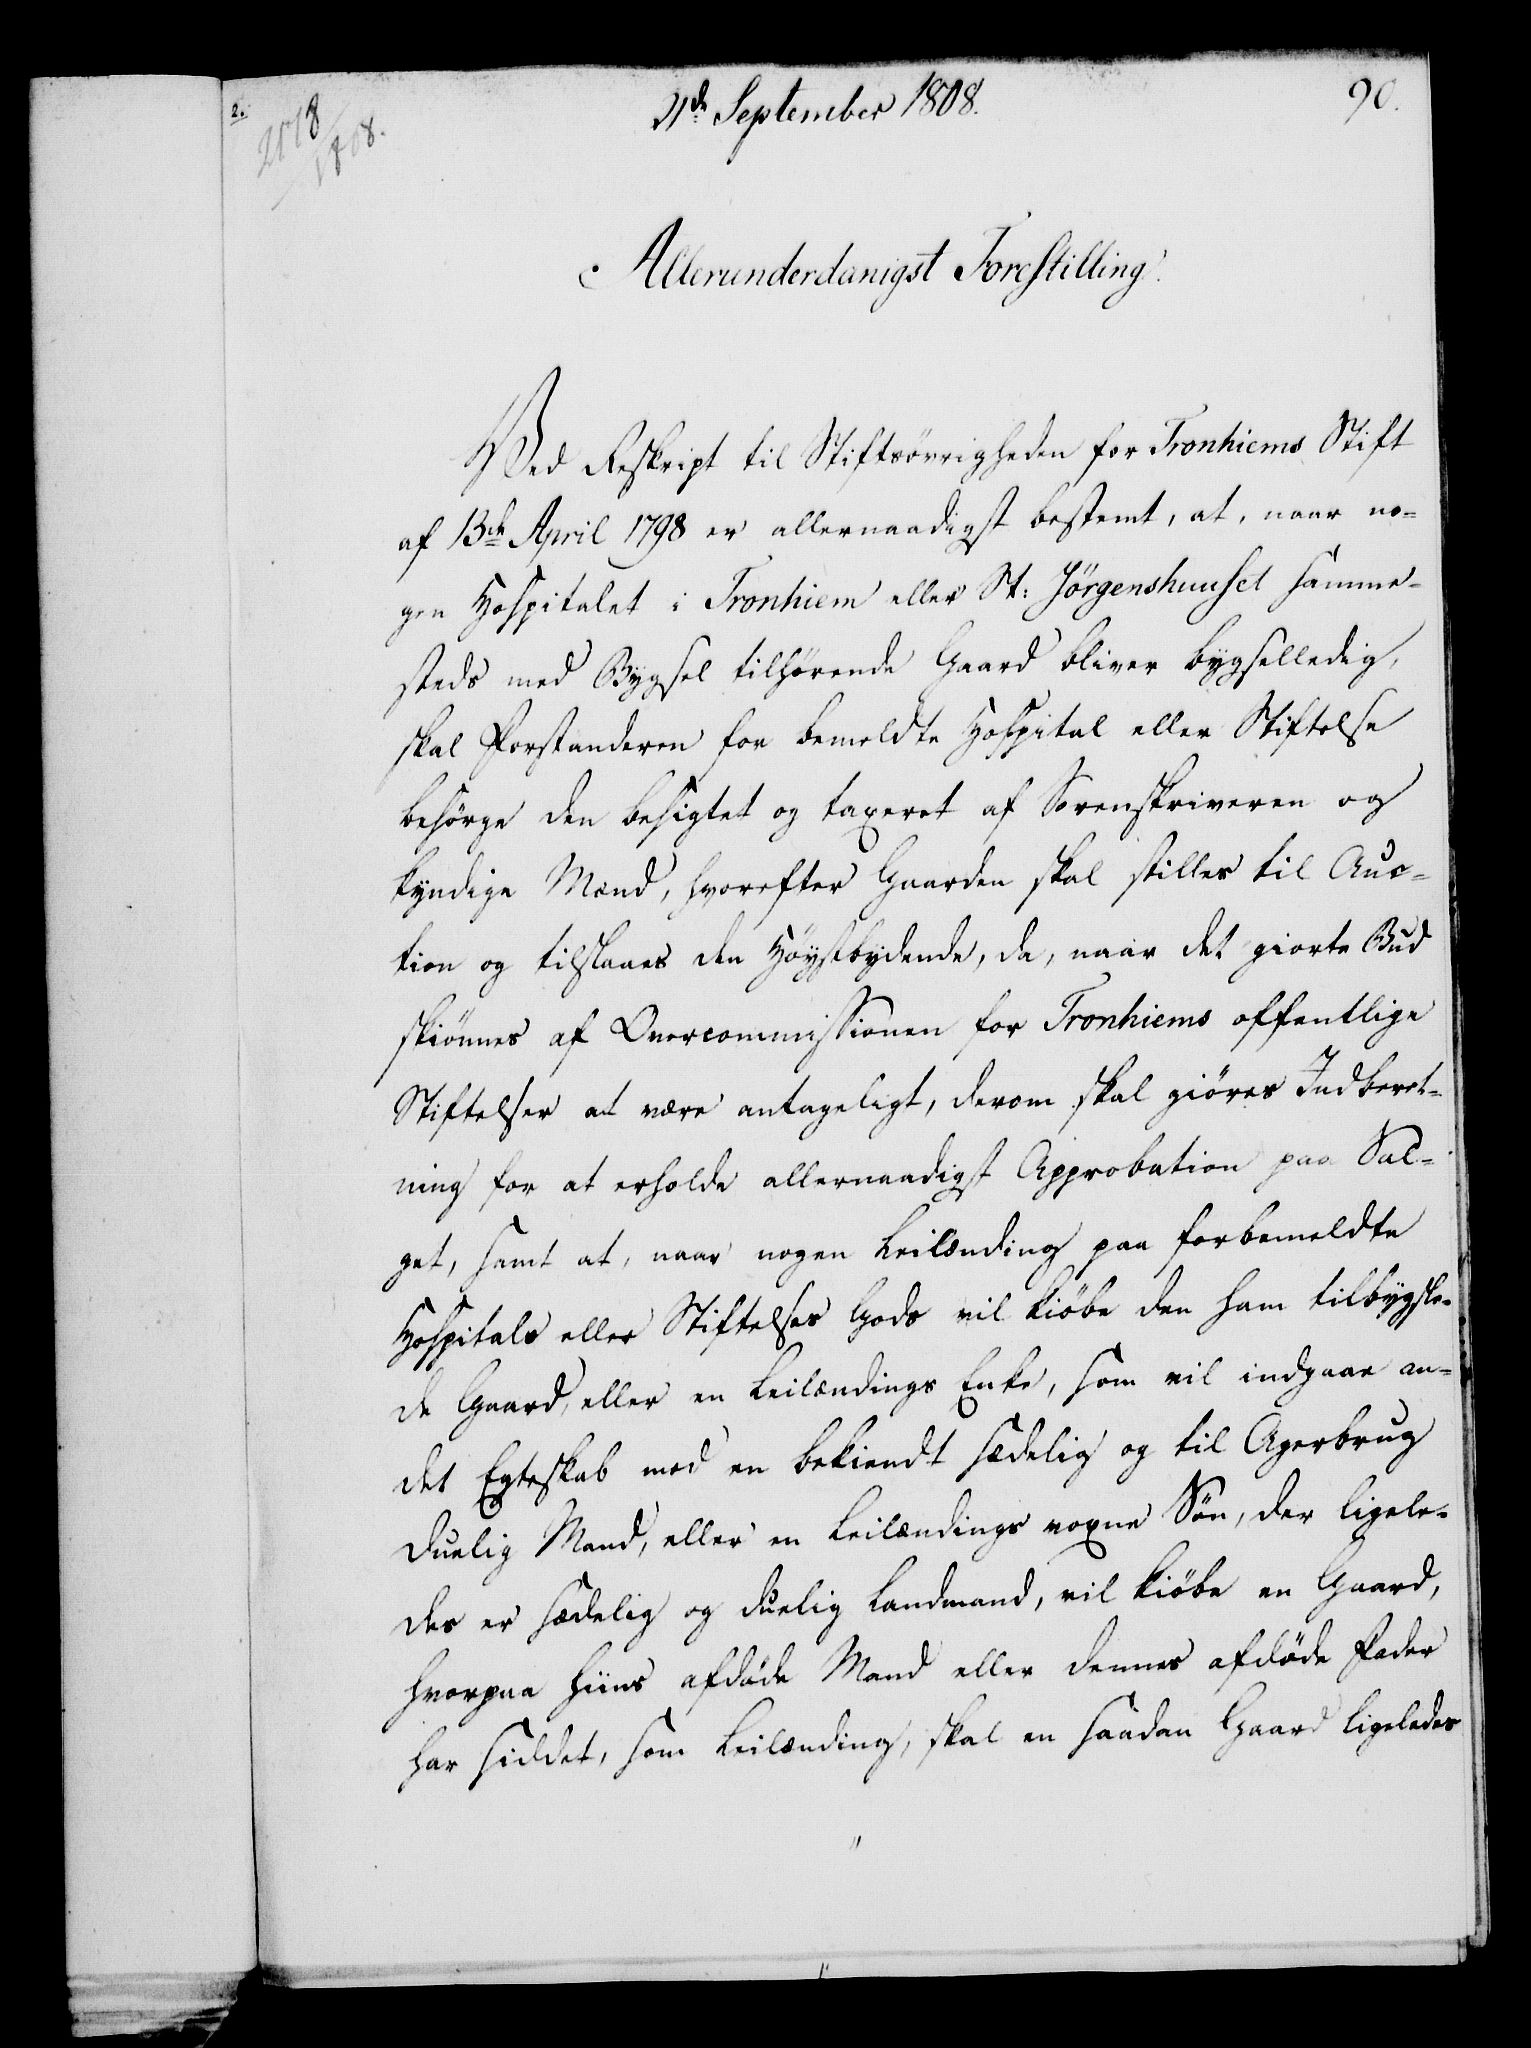 2.
2518/1808.
21de September 1808.
90.
Allerunderdanigst Forestilling.
Ved Reskript til Stiftsövrigheden for Tronhiems Stift
af 13de April 1798 er allernaadigst bestemt, at, naar no-
gen Hospitalet i Tronhiem eller St: Jörgenshuuset samme-
steds med Bygsel tilhörende Gaard bliver bygselledig,
skal Forstanderen for bemeldte Hospital eller Stiftelse
besörge den besigtet og taxeret af Sorenskriveren og
kyndige Mænd, hvorefter Gaarden skal stilles til Auc-
tion og tilslaaes den Höystbydende, da, naar det giorte Bud
skiönnes af Overcommissionen for Tronhiems offentlige
Stiftelser at være antageligt, derom skal giöres Indberet-
ning for at erholde allernaadigst Approbation paa Sal-
get, samt at, naar nogen Leilænding paa forbemeldte
Hospitals eller Stiftelses Gods vil kiöbe den ham tilbygsle-
de Gaard, eller en Leilændings Enke, som vil indgaae an-
det Egteskab med en bekiendt sædelig og til Agerbrug
duelig Mand, eller en Leilændings voxne Sön, der ligele-
des er sædelig og duelig Landmand, vil kiöbe en Gaard,
hvorpaa hiins afdöde Mand eller dennes afdöde Fader
har siddet, som Leilænding, skal en saadan Gaard ligeledes